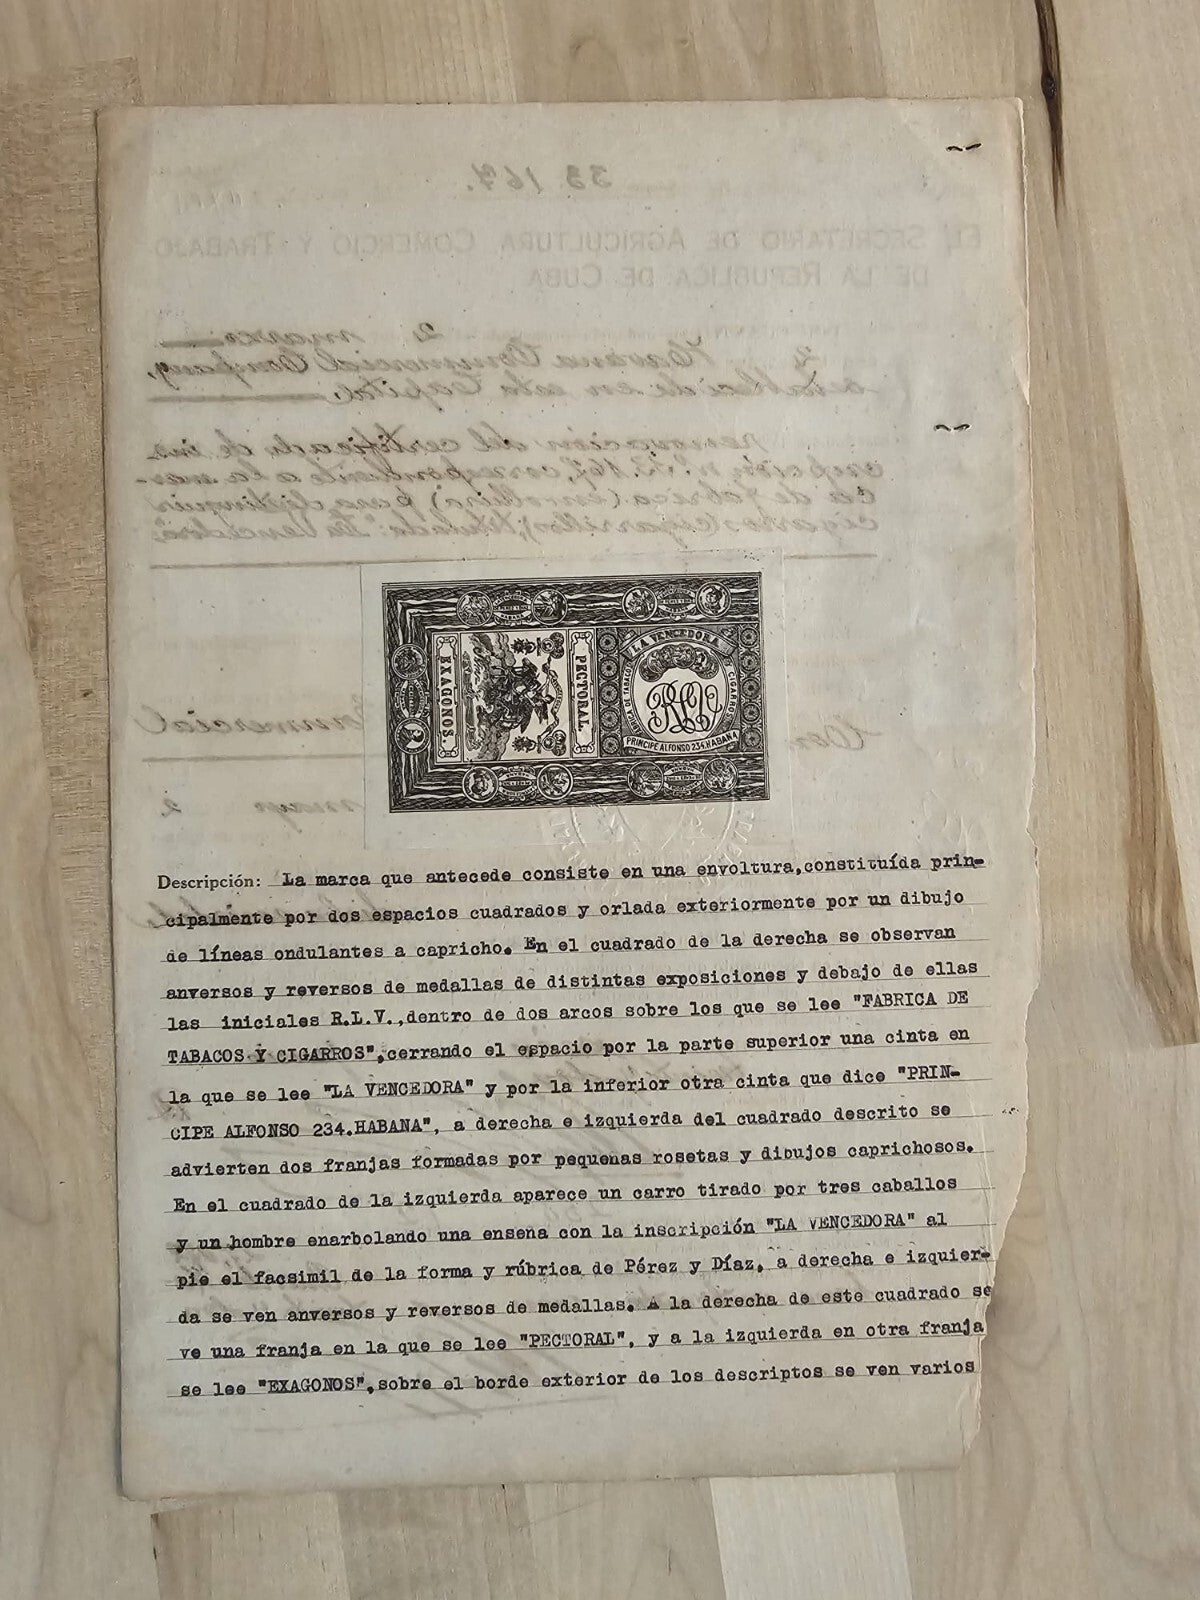 33.167.
EL SECRETARIO DE AGRICULTURA, COMERCIO Y TRABAJO
DE LA REPUBLICA DE CUBA
2 marzo
Havana Commercial Company,
en esta Capital.
renovación del certificado de ins-
cripción nº 33.167, correspondiente a la mar-
ca de fábrica (envoltura) para distinguir
cigarros (cigarrillos), titulada: "La Vencedora"
EXAGONOS.
PECTORAL.
LA VENCEDORA
FABRICA DE TABACOS
CIGARROS
RLV
PRINCIPE ALFONSO 234. HABANA
Commercial
mayo 2
Descripción: La marca que antecede consiste en una envoltura,constituída prin-
cipalmente por dos espacios cuadrados y orlada exteriormente por un dibujo
de líneas ondulantes a capricho. En el cuadrado de la derecha se observan
anversos y reversos de medallas de distintas exposiciones y debajo de ellas
las iniciales R.L.V.,dentro de dos arcos sobre los que se lee "FABRICA DE
TABACOS Y CIGARROS",cerrando el espacio por la parte superior una cinta en
la que se lee "LA VENCEDORA" y por la inferior otra cinta que dice "PRIN-
CIPE ALFONSO 234.HABANA", a derecha e izquierda del cuadrado descrito se
advierten dos franjas formadas por pequeñas rosetas y dibujos caprichosos.
En el cuadrado de la izquierda aparece un carro tirado por tres caballos
y un hombre enarbolando una enseña con la inscripción "LA VENCEDORA" al
pie el facsimil de la forma y rúbrica de Pérez y Díaz, a derecha e izquier-
da se ven anversos y reversos de medallas. A la derecha de este cuadrado se
ve una franja en la que se lee "PECTORAL", y a la izquierda en otra franja
se lee "EXAGONOS",sobre el borde exterior de los descriptos se ven varios